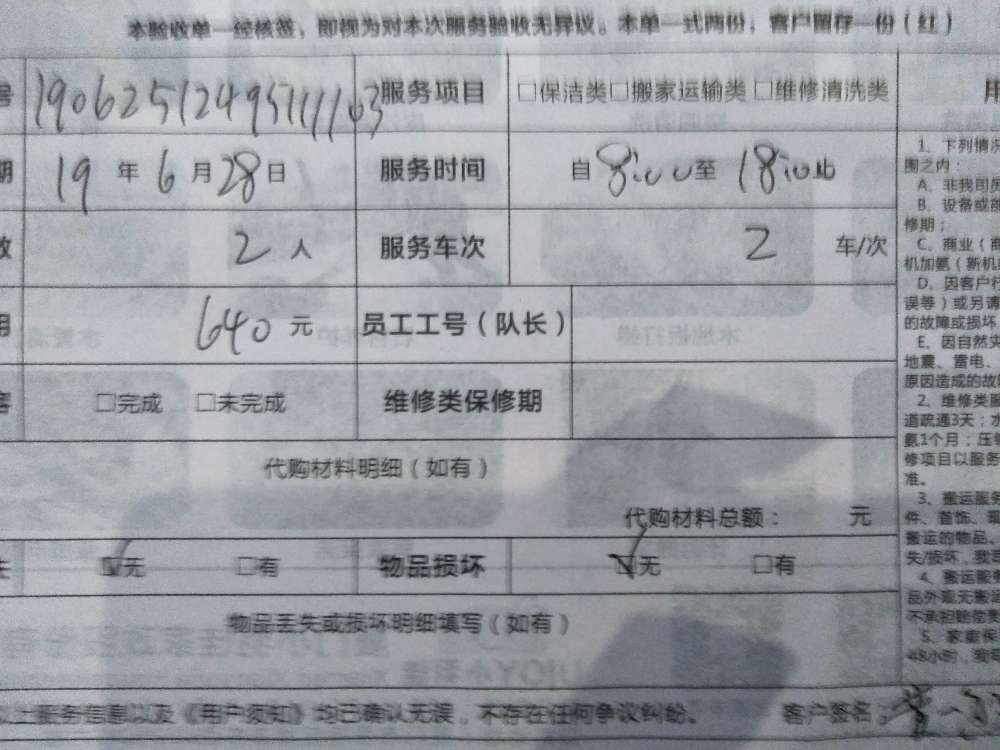 本验收单一经核签，即视为对本次服务验收无异议。本单一式两份，客户留存一份（红）
号 190625124951111163 服务项目 □保洁类□搬家运输类 □维修清洗类
期 19 年 6 月 28 日 服务时间 自 8:00 至 18:00 止
数 2 人 服务车次 2 车/次
用 640 元 员工工号（队长）
容 □完成 □未完成 维修类保修期
代购材料明细（如有）
代购材料总额： 元
失 ☑无 □有 物品损坏 ☑无 □有
物品丢失或损坏明细填写（如有）
以上服务信息以及《用户须知》均已确认无误，不存在任何争议纠纷。 客户签名：
用
1、下列情况
围之内：
A、非我司员
B、设备或部
修期；
C、商业（商
机加氨（新机
D、因客户行
误等）或另请
的故障或损坏
E、因自然灾
地震、雷电、
原因造成的故障
2、维修类服
道疏通3天；水
氨1个月；压缩
修项目以服务
准。
3、搬运服务
件、首饰、现
搬运的物品、
失/损坏，我司
4、搬运服务
品外观无搬运
不承担赔偿责
5、家庭保
48小时，我司